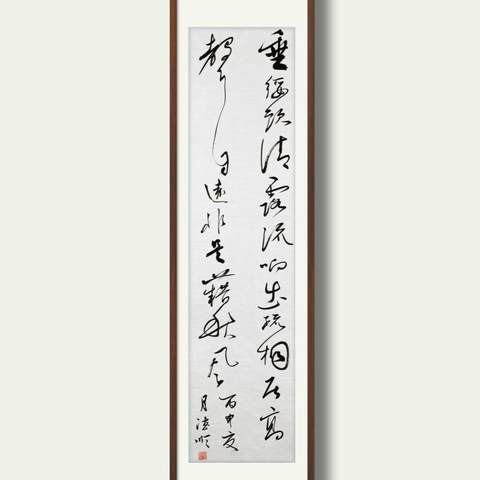 垂緌飲清露流响出疏桐居高
聲自遠非是藉秋風
丙申夏
月